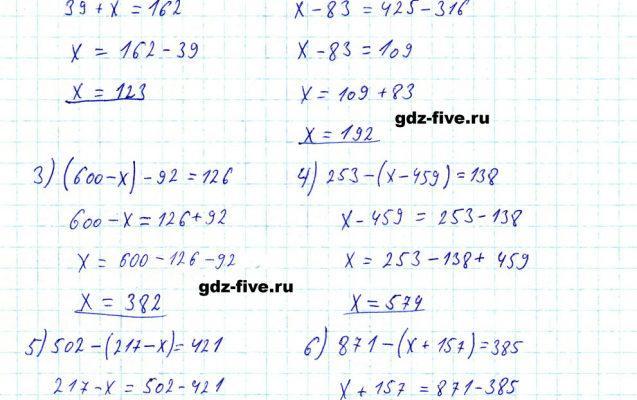 39 + x = 162
x = 162 - 39
x = 123
x - 83 = 425 - 316
x - 83 = 109
x = 109 + 83
gdz-five.ru
x = 192
3) (600 - x) - 92 = 126
600 - x = 126 + 92
x = 600 - 126 - 92
gdz-five.ru
x = 382
4) 253 - (x - 459) = 138
x - 459 = 253 - 138
x = 253 - 138 + 459
x = 574
5) 502 - (217 - x) = 421
217 - x = 502 - 421
6) 871 - (x + 157) = 385
x + 157 = 871 - 385